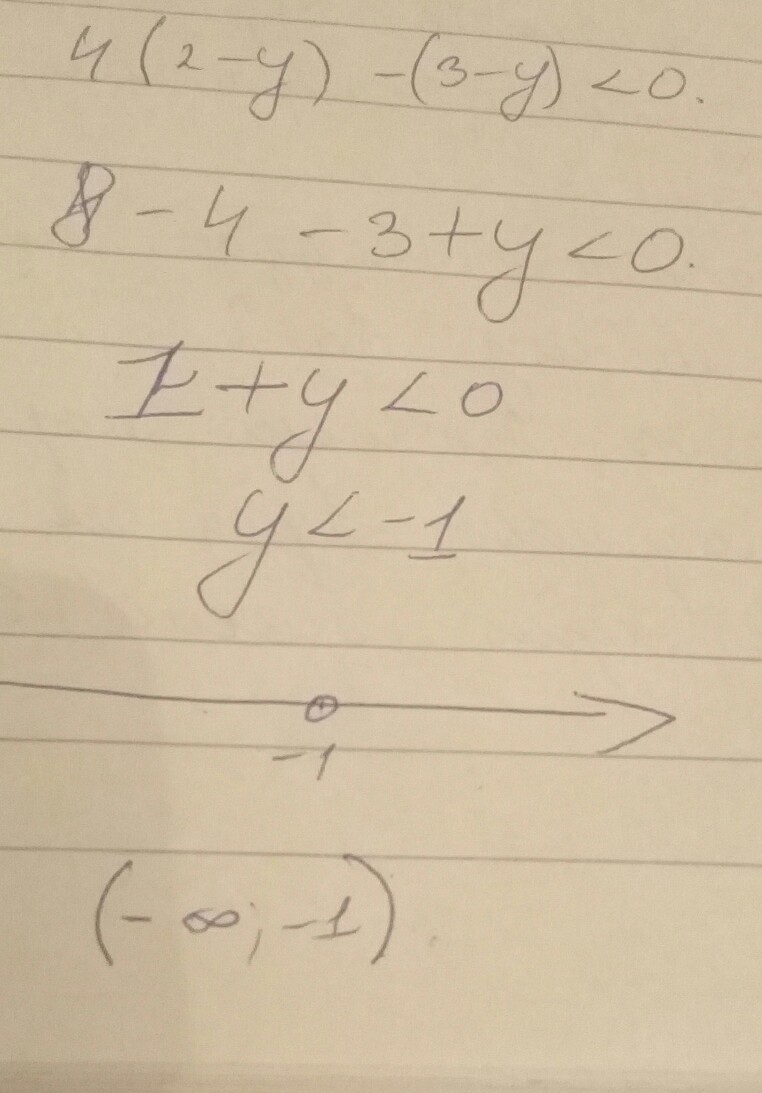 4(2-y) -(3-y) <0.
8 - 4 - 3+y <0.
1+y <0
y < -1
-1
(-∞; -1).